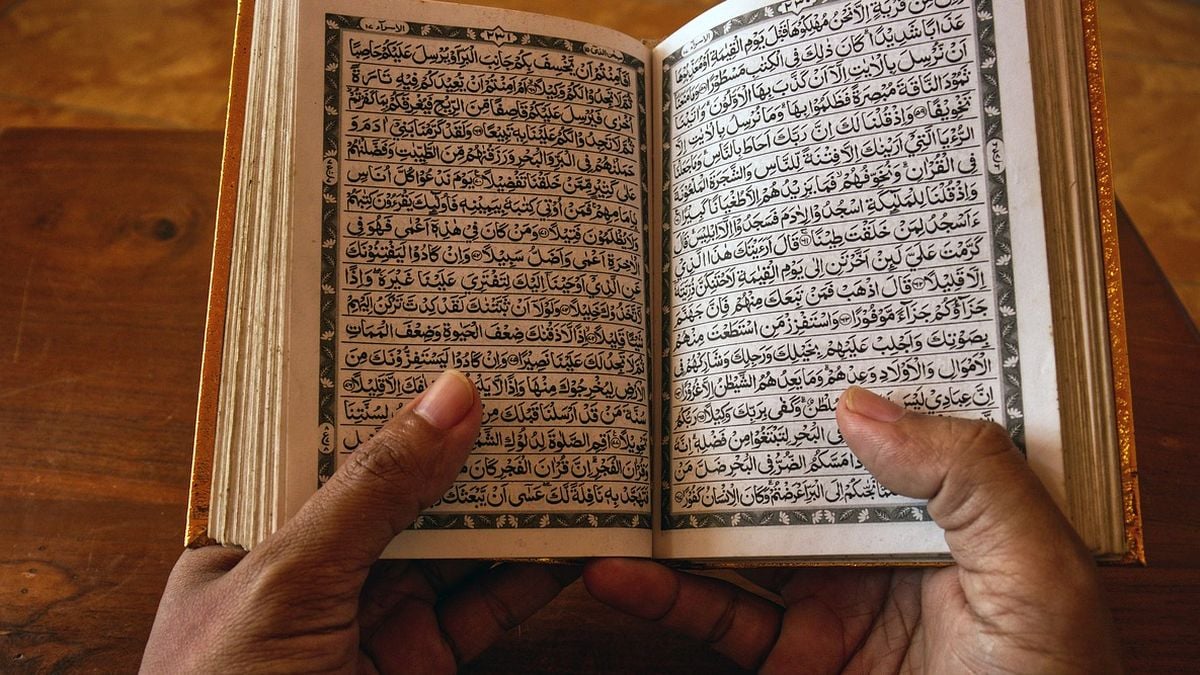 نْ مِّنْ قَرْيَةٍ اِلَّا نَحْنُ مُهْلِكُوْهَا قَبْلَ يَوْمِ الْقِيٰمَةِ اَوْ مُعَذِّبُوْهَا
عَذَابًا شَدِيْدًا كَانَ ذٰلِكَ فِى الْكِتٰبِ مَسْطُوْرًا وَمَا مَنَعَنَا
اَنْ نُّرْسِلَ بِالْاٰيٰتِ اِلَّا اَنْ كَذَّبَ بِهَا الْاَوَّلُوْنَ وَاٰتَيْنَا
ثَمُوْدَ النَّاقَةَ مُبْصِرَةً فَظَلَمُوْا بِهَا وَمَا نُرْسِلُ بِالْاٰيٰتِ اِلَّا
تَخْوِيْفًا وَاِذْ قُلْنَا لَكَ اِنَّ رَبَّكَ اَحَاطَ بِالنَّاسِ وَمَا جَعَلْنَا
الرُّءْيَا الَّتِىْ اَرَيْنٰكَ اِلَّا فِتْنَةً لِّلنَّاسِ وَالشَّجَرَةَ الْمَلْعُوْنَةَ
فِى الْقُرْاٰنِ وَنُخَوِّفُهُمْ فَمَا يَزِيْدُهُمْ اِلَّا طُغْيَانًا كَبِيْرًا
وَاِذْ قُلْنَا لِلْمَلٰٓئِكَةِ اسْجُدُوْا لِاٰدَمَ فَسَجَدُوْا اِلَّا اِبْلِيْسَ قَالَ
ءَاَسْجُدُ لِمَنْ خَلَقْتَ طِيْنًا قَالَ اَرَءَيْتَكَ هٰذَا الَّذِىْ
كَرَّمْتَ عَلَىَّ لَئِنْ اَخَّرْتَنِ اِلٰى يَوْمِ الْقِيٰمَةِ لَاَحْتَنِكَنَّ ذُرِّيَّتَهٗ
اِلَّا قَلِيْلًا قَالَ اذْهَبْ فَمَنْ تَبِعَكَ مِنْهُمْ فَاِنَّ جَهَنَّمَ
جَزَآؤُكُمْ جَزَآءً مَّوْفُوْرًا وَاسْتَفْزِزْ مَنِ اسْتَطَعْتَ مِنْهُمْ
بِصَوْتِكَ وَاَجْلِبْ عَلَيْهِمْ بِخَيْلِكَ وَرَجِلِكَ وَشَارِكْهُمْ فِى
الْاَمْوَالِ وَالْاَوْلَادِ وَعِدْهُمْ وَمَا يَعِدُهُمُ الشَّيْطٰنُ اِلَّا غُرُوْرًا
اِنَّ عِبَادِىْ لَيْسَ سُلْطٰنٌ وَكَفٰى بِرَبِّكَ وَكِيْلًا رَبُّكُمُ
فِى الْبَحْرِ لِتَبْتَغُوْا مِنْ فَضْلِهٖ اِنَّهٗ
مَسَّكُمُ الضُّرُّ فِى الْبَحْرِ ضَلَّ مَنْ
نَجّٰىكُمْ اِلَى الْبَرِّ اَعْرَضْتُمْ وَكَانَ الْاِنْسَانُ كَفُوْرًا
الاسرآء ١٧
اَفَاَمِنْتُمْ اَنْ يَّخْسِفَ بِكُمْ جَانِبَ الْبَرِّ اَوْ يُرْسِلَ عَلَيْكُمْ حَاصِبًا
ثُمَّ لَا تَجِدُوْا لَكُمْ وَكِيْلًا اَمْ اَمِنْتُمْ اَنْ يُّعِيْدَكُمْ فِيْهِ تَارَةً
اُخْرٰى فَيُرْسِلَ عَلَيْكُمْ قَاصِفًا مِّنَ الرِّيْحِ فَيُغْرِقَكُمْ بِمَا كَفَرْتُمْ
ثُمَّ لَا تَجِدُوْا لَكُمْ عَلَيْنَا بِهٖ تَبِيْعًا وَلَقَدْ كَرَّمْنَا بَنِىْٓ اٰدَمَ وَ
حَمَلْنٰهُمْ فِى الْبَرِّ وَالْبَحْرِ وَرَزَقْنٰهُمْ مِّنَ الطَّيِّبٰتِ وَفَضَّلْنٰهُمْ
عَلٰى كَثِيْرٍ مِّمَّنْ خَلَقْنَا تَفْضِيْلًا يَوْمَ نَدْعُوْا كُلَّ اُنَاسٍ
بِاِمَامِهِمْ فَمَنْ اُوْتِىَ كِتٰبَهٗ بِيَمِيْنِهٖ فَاُولٰٓئِكَ يَقْرَءُوْنَ كِتٰبَهُمْ
وَلَا يُظْلَمُوْنَ فَتِيْلًا وَمَنْ كَانَ فِىْ هٰذِهٖٓ اَعْمٰى فَهُوَ فِى
الْاٰخِرَةِ اَعْمٰى وَاَضَلُّ سَبِيْلًا وَاِنْ كَادُوْا لَيَفْتِنُوْنَكَ
عَنِ الَّذِىْٓ اَوْحَيْنَآ اِلَيْكَ لِتَفْتَرِىَ عَلَيْنَا غَيْرَهٗ وَاِذًا
لَّاتَّخَذُوْكَ خَلِيْلًا وَلَوْلَآ اَنْ ثَبَّتْنٰكَ لَقَدْ كِدْتَّ تَرْكَنُ اِلَيْهِمْ
شَيْئًا قَلِيْلًا اِذًا لَّاَذَقْنٰكَ ضِعْفَ الْحَيٰوةِ وَضِعْفَ الْمَمَاتِ
ثُمَّ لَا تَجِدُ لَكَ عَلَيْنَا نَصِيْرًا وَاِنْ كَادُوْا لَيَسْتَفِزُّوْنَكَ مِنَ
الْاَرْضِ لِيُخْرِجُوْكَ مِنْهَا وَاِذًا لَّا خِلٰفَكَ اِلَّا قَلِيْلًا
سُنَّةَ مَنْ قَدْ اَرْسَلْنَا قَبْلَكَ مِنْ لِسُنَّتِنَا
تَحْوِيْلًا اَقِمِ الصَّلٰوةَ لِدُلُوْكِ الشَّمْسِ
وَقُرْاٰنَ الْفَجْرِ اِنَّ قُرْاٰنَ الْفَجْرِ كَانَ
فَتَهَجَّدْ بِهٖ نَافِلَةً لَّكَ عَسٰٓى اَنْ يَّبْعَثَكَ